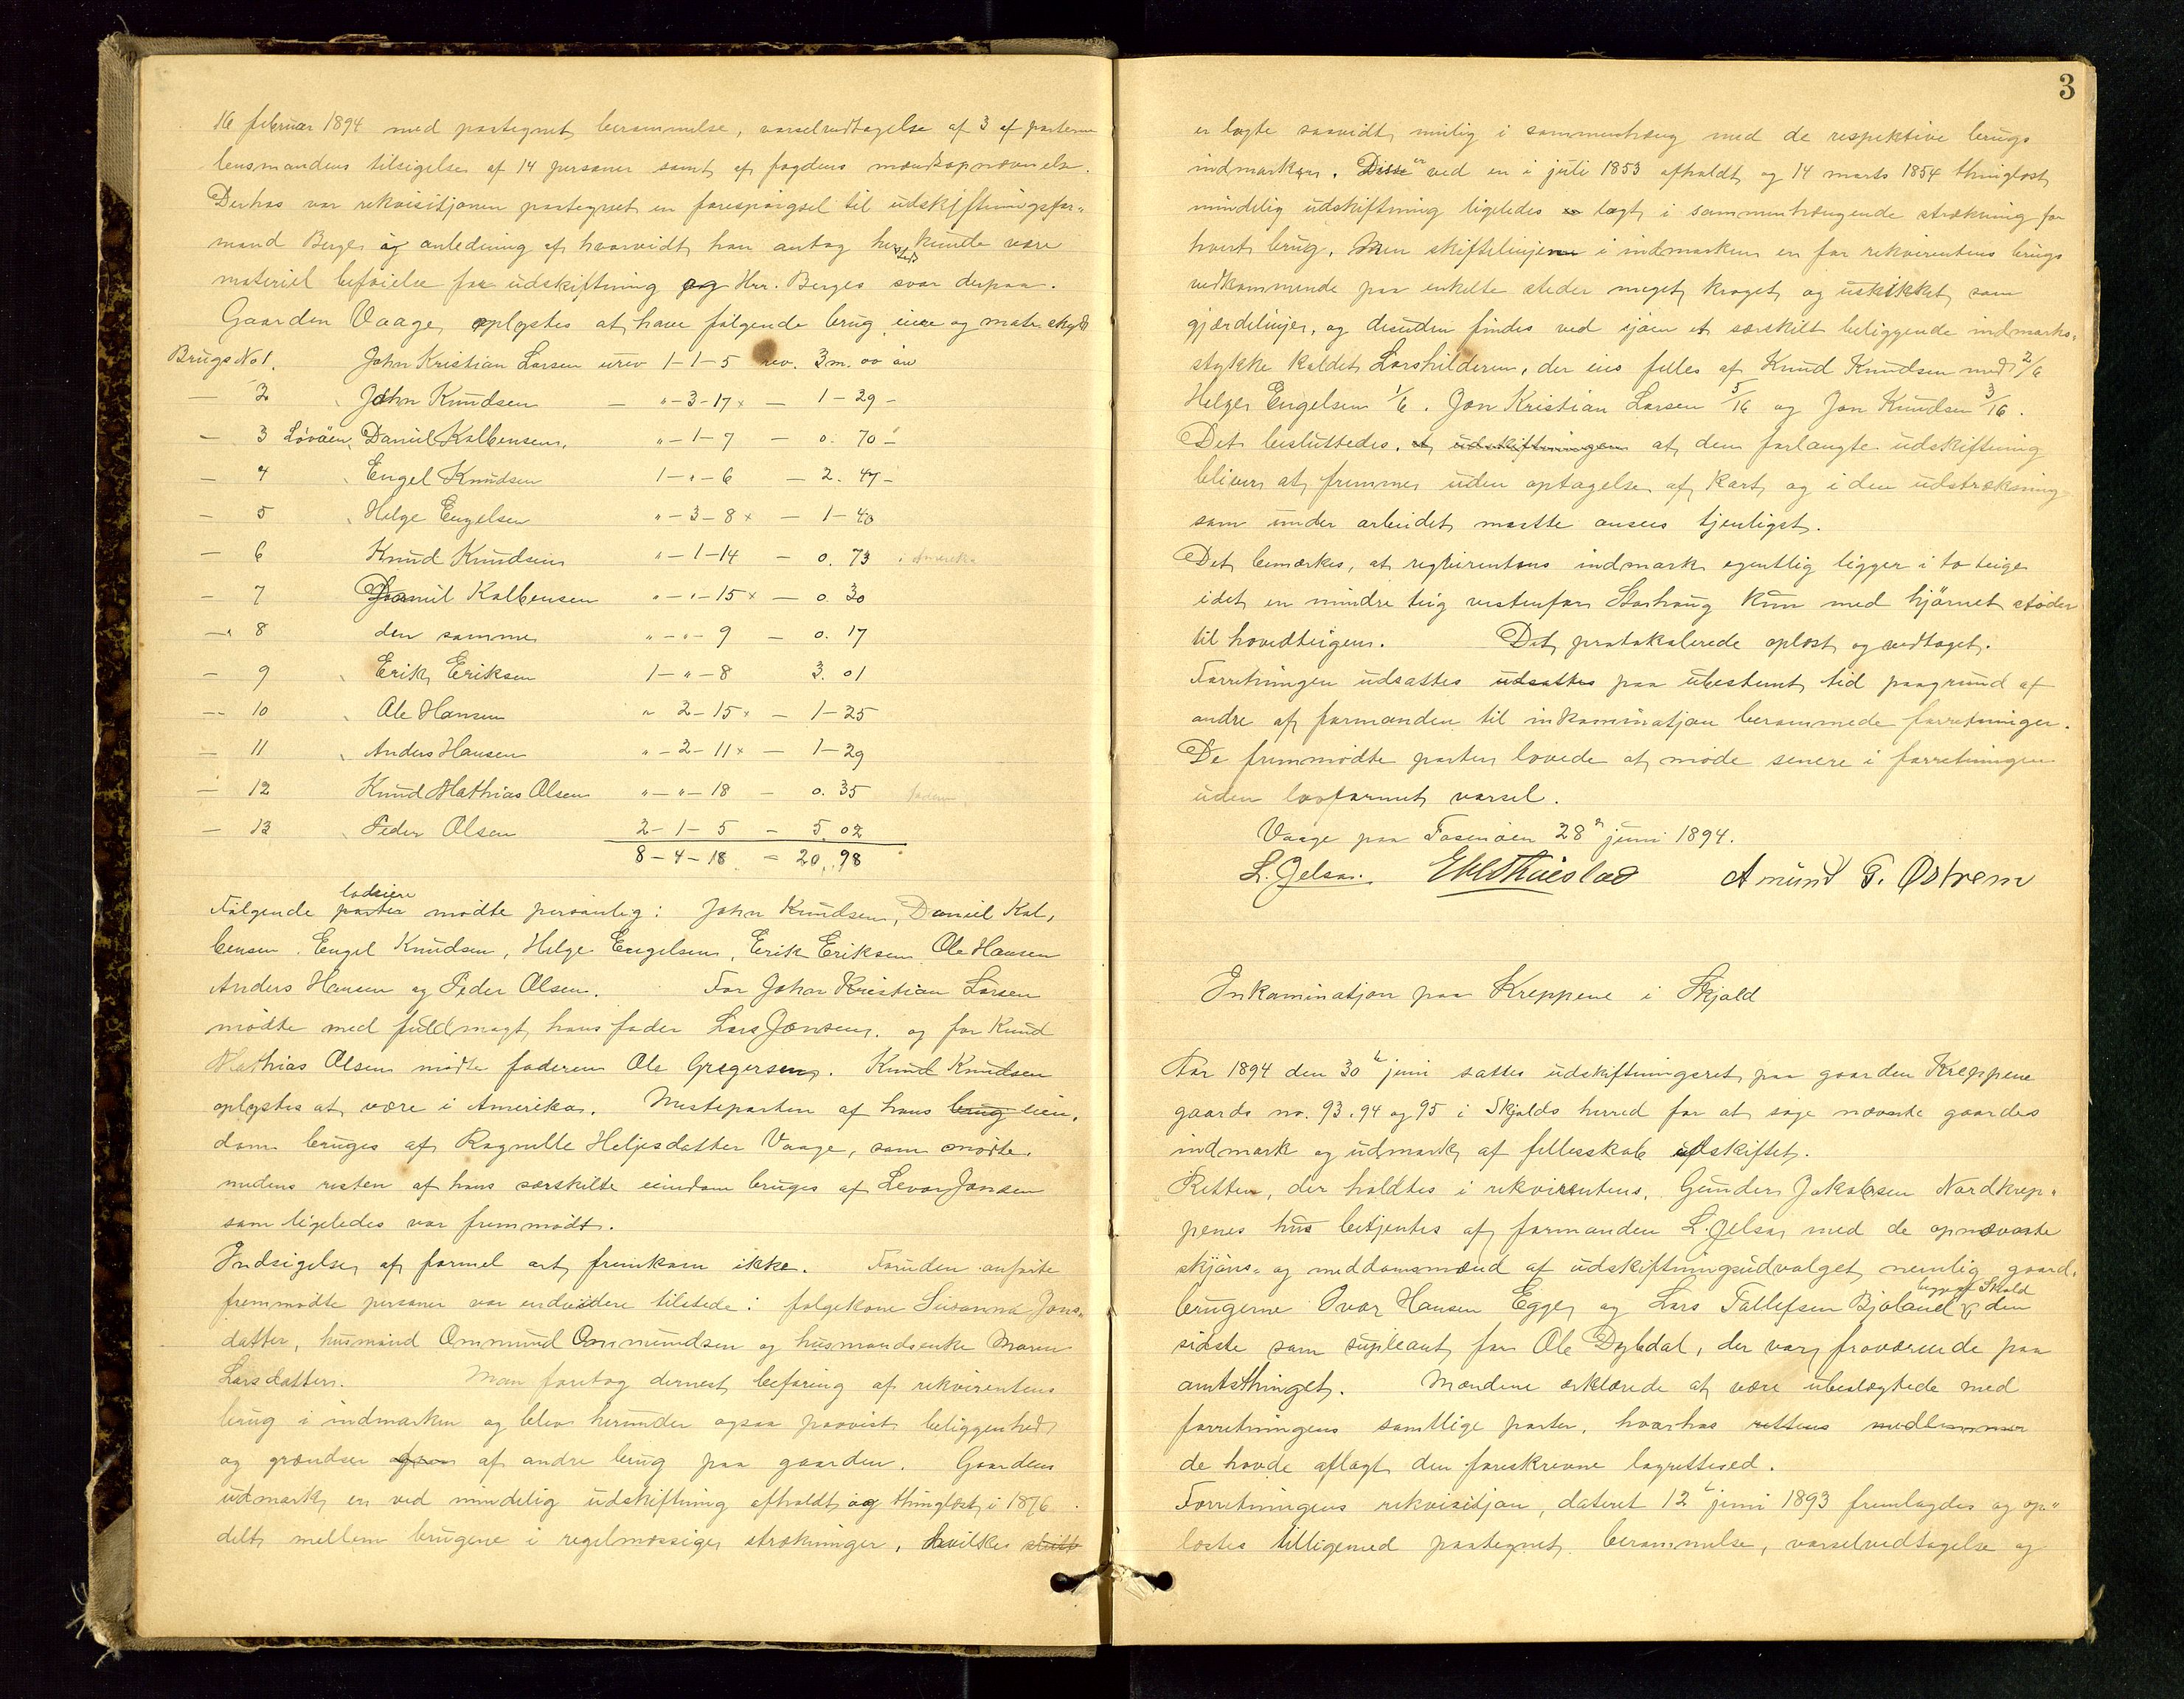 16 februar 1894 med paategnet berammelse, varselvedtagelse af 3 af parterne
lensmandens tilsigelse af 14 personer samt af fogdens mændsopnævnelse.
Derhos var rekvisitjonen paategnet en forespørgsel til udskiftningsfor-
mand Berge i anledning af hvorvidt han antog her sted kunde være
materiel beføielse for udskiftning og Hrr. Berges svar derpaa.
Gaarden Vaage oplystes at have følgende brug, eiere og matr. skyld
Brugs No 1. John Kristian Larsen urev 1-1-5 rev. 3 m. 00 øre
— 2 John Knudsen — " - 3 - 17 x — 1 - 29 -
— 3 Løvåen, Daniel Kolbensen, " - 1 - 7 — 0. 70 -
— 4 Engel Knudsen 1 - " - 6 — 2. 47 -
— 5 Helge Engelsen " - 3 - 8 x — 1 - 40
— 6 Knud Knudsen " - 1 - 14 — 0. 73 i Amerika
— 7 Daniel Kolbensen " - " - 15 x — 0. 30
— 8 den samme " - " - 9 — 0. 17
— 9 Erik Eriksen 1 - " - 8 3. 01
— 10 Ole Hansen " 2 - 15 x — 1 - 25
— 11 Anders Hansen " - 2 - 11 x — 1 - 29
— 12 Knud Mathias Olsen " - " - 18 — 0. 35 faderen
— 13 Peder Olsen 2 - 1 - 5 — 5. 02
8 - 4 - 18 — 20. 98
Følgende parter lodeiere mødte personlig: John Knudsen, Daniel Kol-
bensen. Engel Knudsen, Helge Engelsen, Erik Eriksen Ole Hansen
Anders Hansen og Peder Olsen. For Johan Kristian Larsen
mødte med fuldmagt hans fader Lars Jonsen. og for Knud
Mathias Olsen mødte faderen Ole Gregersen. Knud Knudsen
oplystes at være i Amerika. Mesteparten af hans brug eien-
dom bruges af Ragnille Helgesdatter Vaage, som mødte.
medens resten af hans særskilte eiendom bruges af Levor Jonsen
som ligeledes var fremmødt.
Indsigelse af formel art fremkom ikke. Foruden anførte
fremmødte personer var endvidere tilstede: følgekone Susanna Jons-
datter, husmand Ommund Ommundsen og husmandsenke Maren
Larsdatter. Man foretog dernest befaring af rekvirentens
brug i indmarken og blev herunder ogsaa paavist beliggenhed
og grændser af andre brug paa gaarden. Gaardens
udmark er ved mindelig udskiftning afholdt og thinglæst i 1876
delt mellem brugene i regelmæssige strækninger, hvilke
3
er lagte saavidt mulig i sammenhæng med de respektive brugs
indmarker. Disse er ved en i juli 1853 afholdt og 14 marts 1854 thinglæst
mindelig udskiftning ligeledes lagt i sammenhængende strækning for
hvert brug. Men skiftelinjerne i indmarken er for rekvirentens brugs
vedkommende paa enkelte steder meget kroget og uskikket som
gjærdelinjer, og desuden findes ved sjøen et særskilt beliggende indmarks-
stykke kaldet Larshilderen, der eies felles af Knud Knudsen med 2/6
Helge Engelsen 1/6. Jon Kristian Larsen 5/16 og Jon Knudsen 3/16.
Det besluttedes, at udskiftningen at den forlangte udskiftning
bliver at fremme uden optagelse af kart og i den udstrækning
som under arbeidet maatte ansees tjenligst.
Det bemærkes, at reqvirentens indmark egentlig ligger i to teige
idet en mindre teig vestenfor Storhaug kun med hjørnet støder
til hovedteigen. Det protokolerede oplæst og vedtaget.
Forretningen udsattes udsattes paa ubestemt tid paagrund af
andre af formanden til inkaminatjon berammede forretninger.
De fremmødte parter lovede at møde senere i forretningen
uden lovformet varsel.
Vaage paa Fosenøen 28de juni 1894.
L. Jelsa. Amund G. Østrem
Inkaminatjon paa Kreppene i Skjold
Aar 1894 den 30te juni sattes udskiftningsret paa gaarden Kreppene
gaards no. 93. 94 og 95 i Skjolds herred for at søge nævnte gaardes
indmark og udmark af fellesskab udskiftet.
Retten, der holdtes i rekvirentens, Gunder Jakobsen Nordkrep-
penes hus betjentes af formanden L. Jelsa, med de opnævnte
skjøns- og meddomsmænd af udskiftningsudvalget nemlig gaard-
brugerne Ovar Hansen Egge, og Lars Tollefsen Bjoland begge af Skjold den
sidste som supleant for Ole Dybdal, der var fraværende paa
amtsthinget. Mændene erklærede at være ubeslægtede med
forretningens samtlige parter, hvorhos rettens medlemmer
de havde aflagt den foreskrevne lagretteed.
Forretningens rekvisitjon, dateret 12te juni 1893 fremlagdes og op-
læstes tilligemed paategnet berammelse, varselvedtagelse og